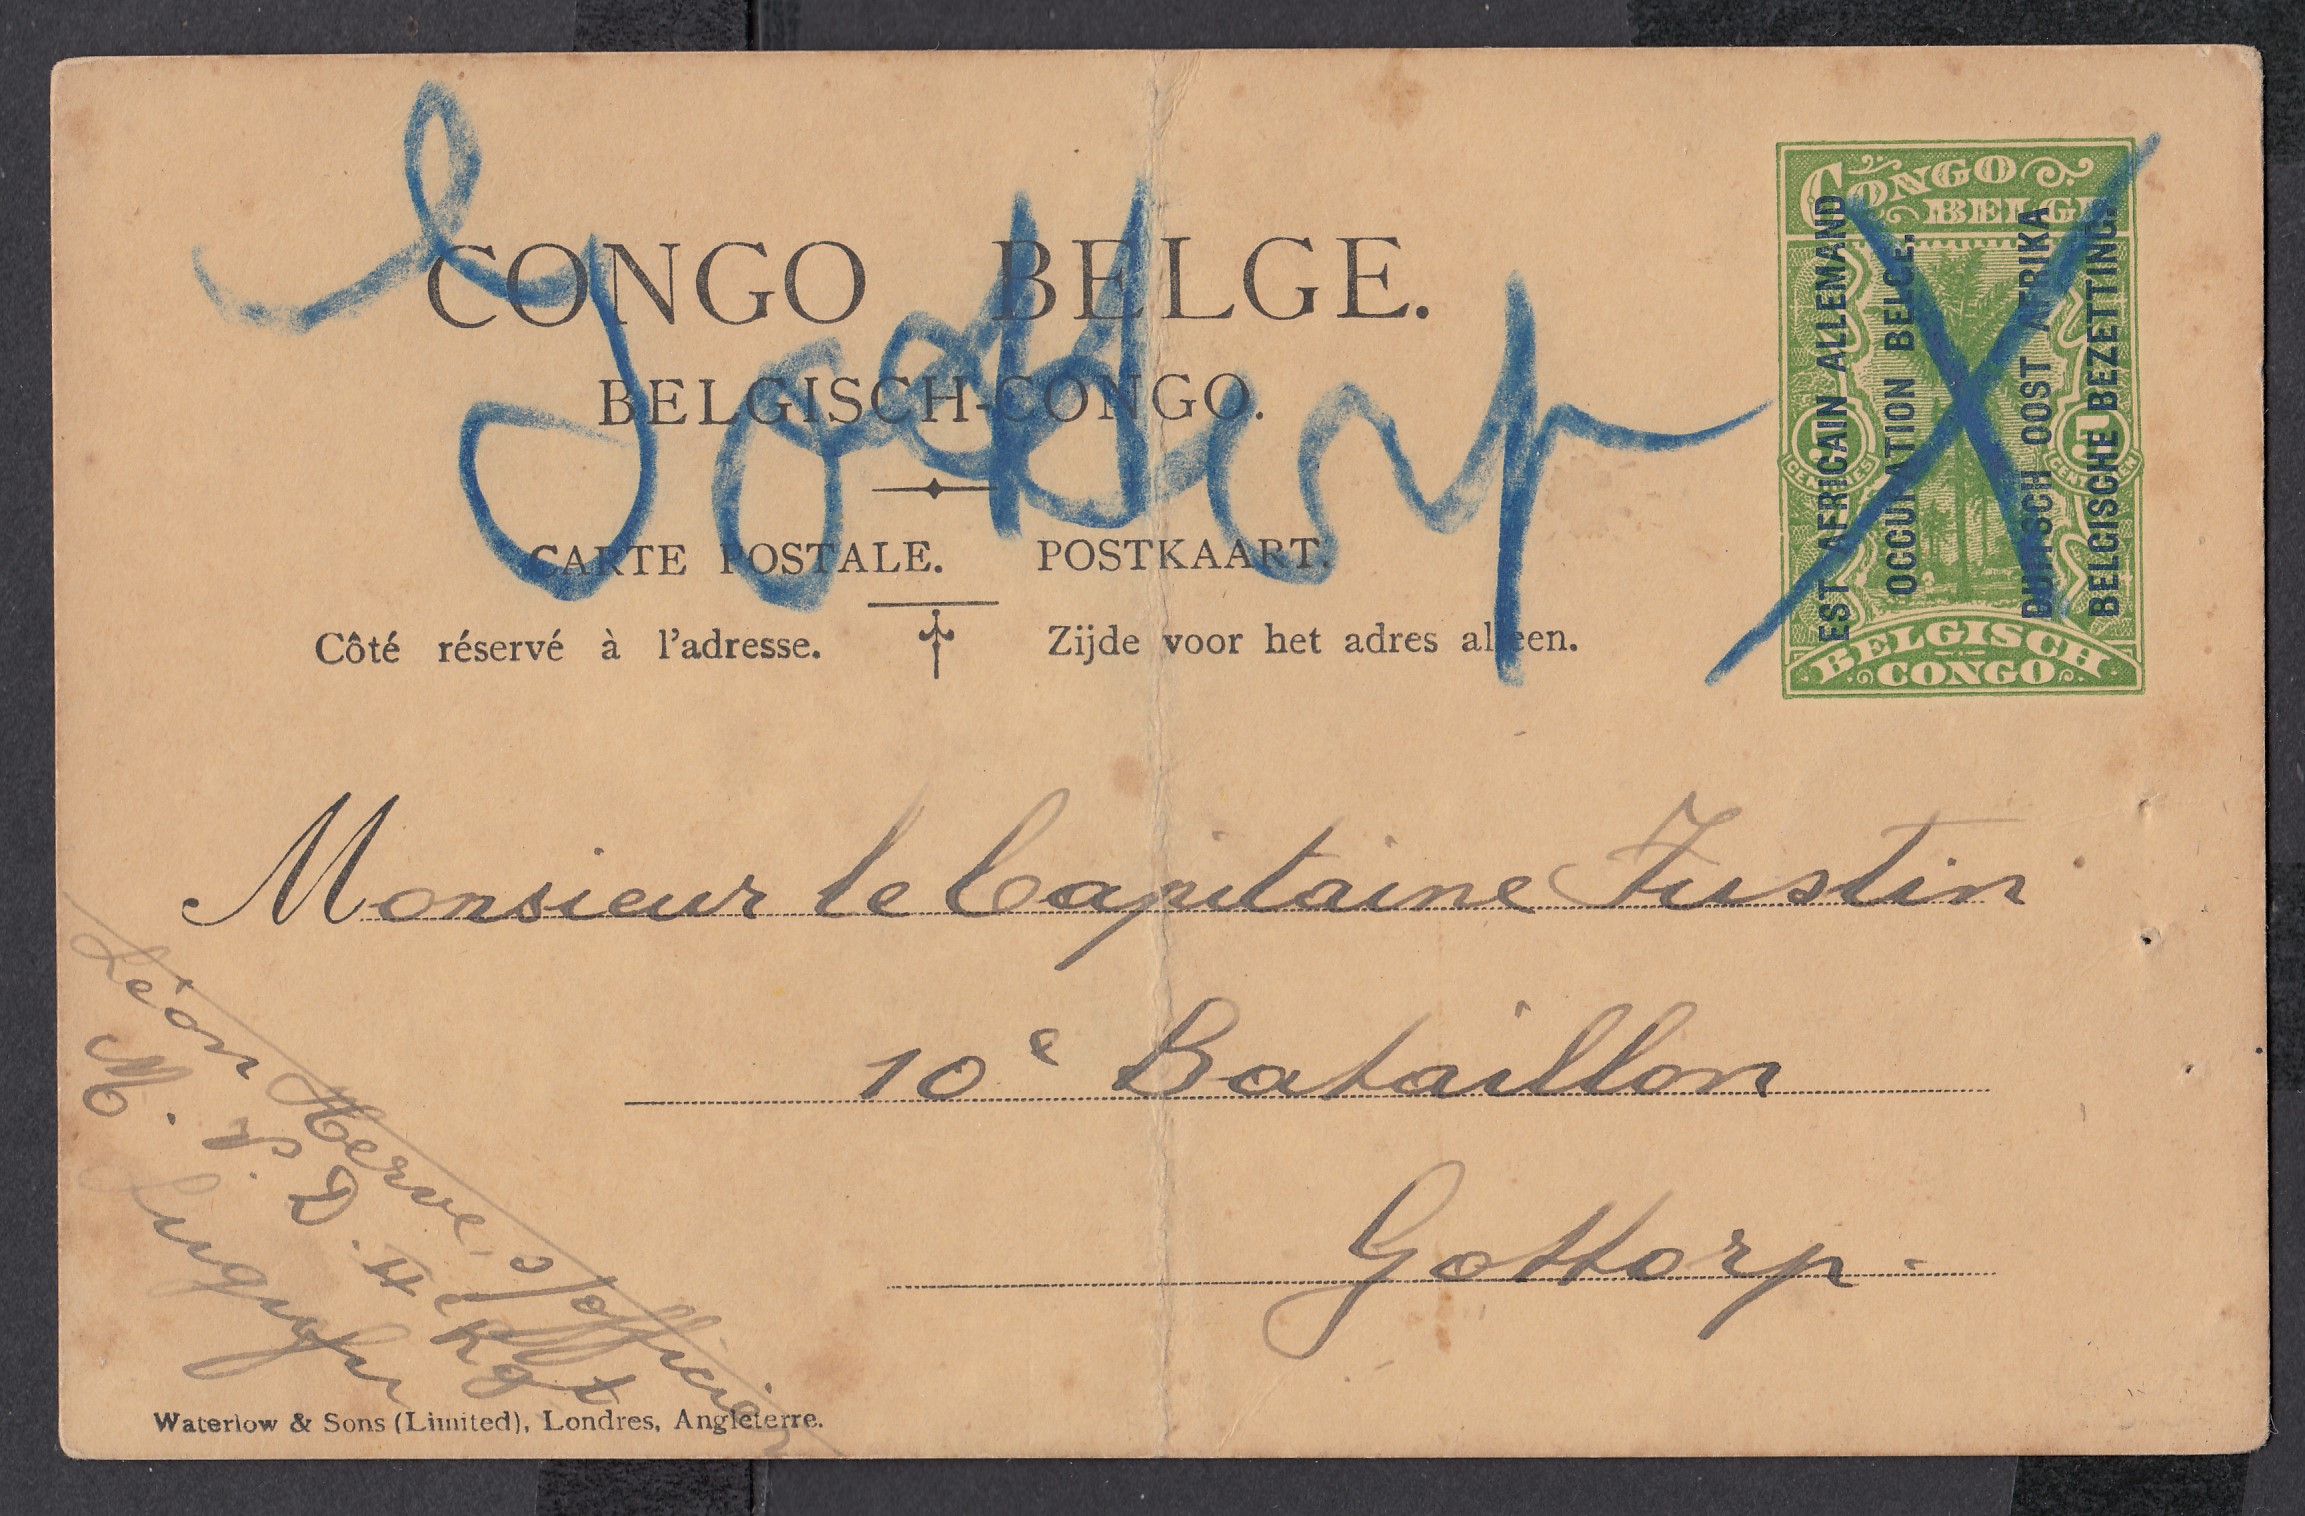 Gottorp
CONGO BELGE.
BELGISCH-CONGO.
CARTE POSTALE. POSTKAART.
Côté réservé à l'adresse. Zijde voor het adres alleen.
CONGO
BELGE
EST AFRICAIN ALLEMAND
OCCUPATION BELGE.
DUITSCH OOST AFRIKA
BELGISCHE BEZETTING.
5 5
CENTIMES CENTIEMEN
BELGISCH
CONGO
Monsieur le Capitaine Justin
10e Bataillon
Gottorp-
Léon Herve, s/officier
M. P. D. 4e Rgt
Waterlow & Sons (Limited), Londres, Angleterre.